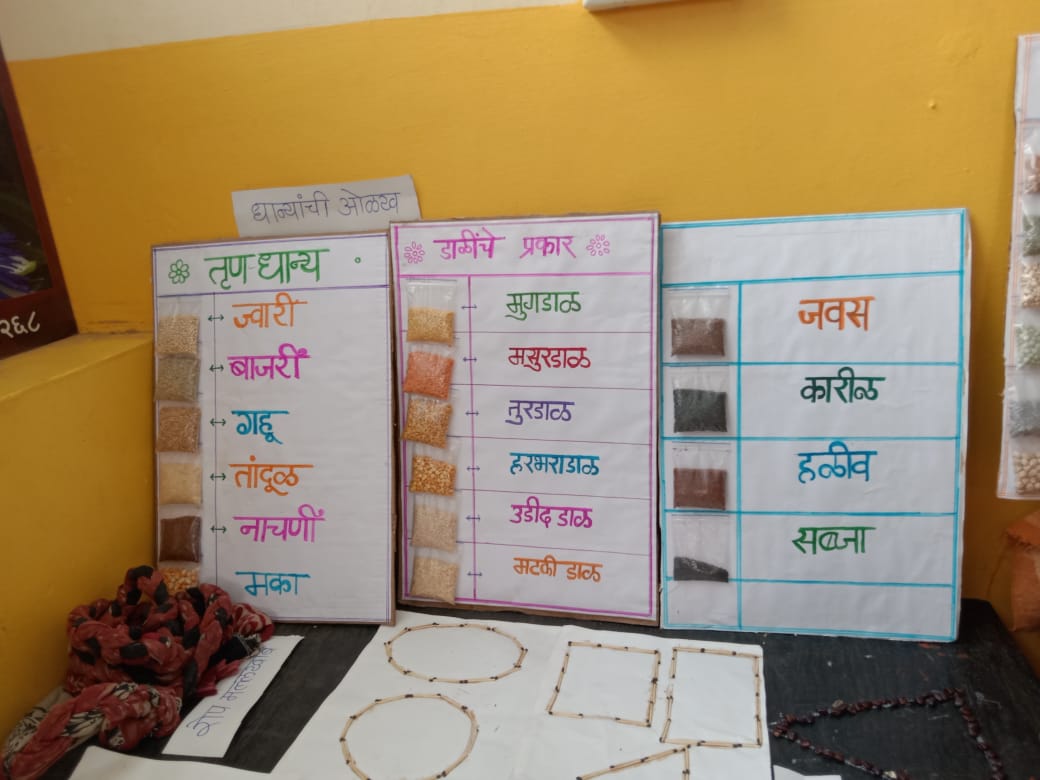 धान्यांची ओळख
तृण-धान्य
ज्वारी
बाजरीं
गहू
तांदूळ
नाचणीं
मका
डाळींचे प्रकार
मुगडाळ
मसुरडाळ
तुरडाळ
हरभराडाळ
उडीद डाळ
मटकी डाळ
जवस
कारीळ
हळीव
सब्जा
२६८
रोप मल्लखांब